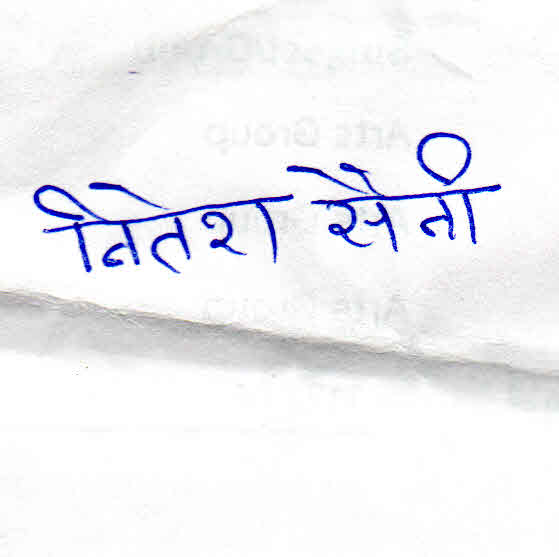 नितेश सैनी